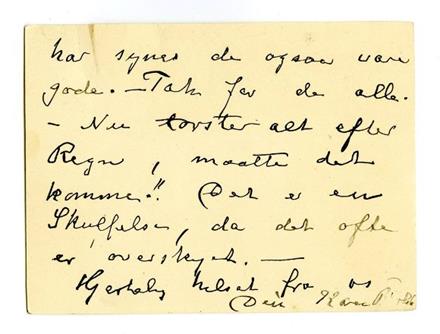 har synes de ogsaa vare
gode. — Tak for de alle.
— Nu tørster alt efter
Regn, maatte det
komme!! Det er en
Skuffelse, da det ofte
er overskyet. —
Hjertelig hilset fra os
Din